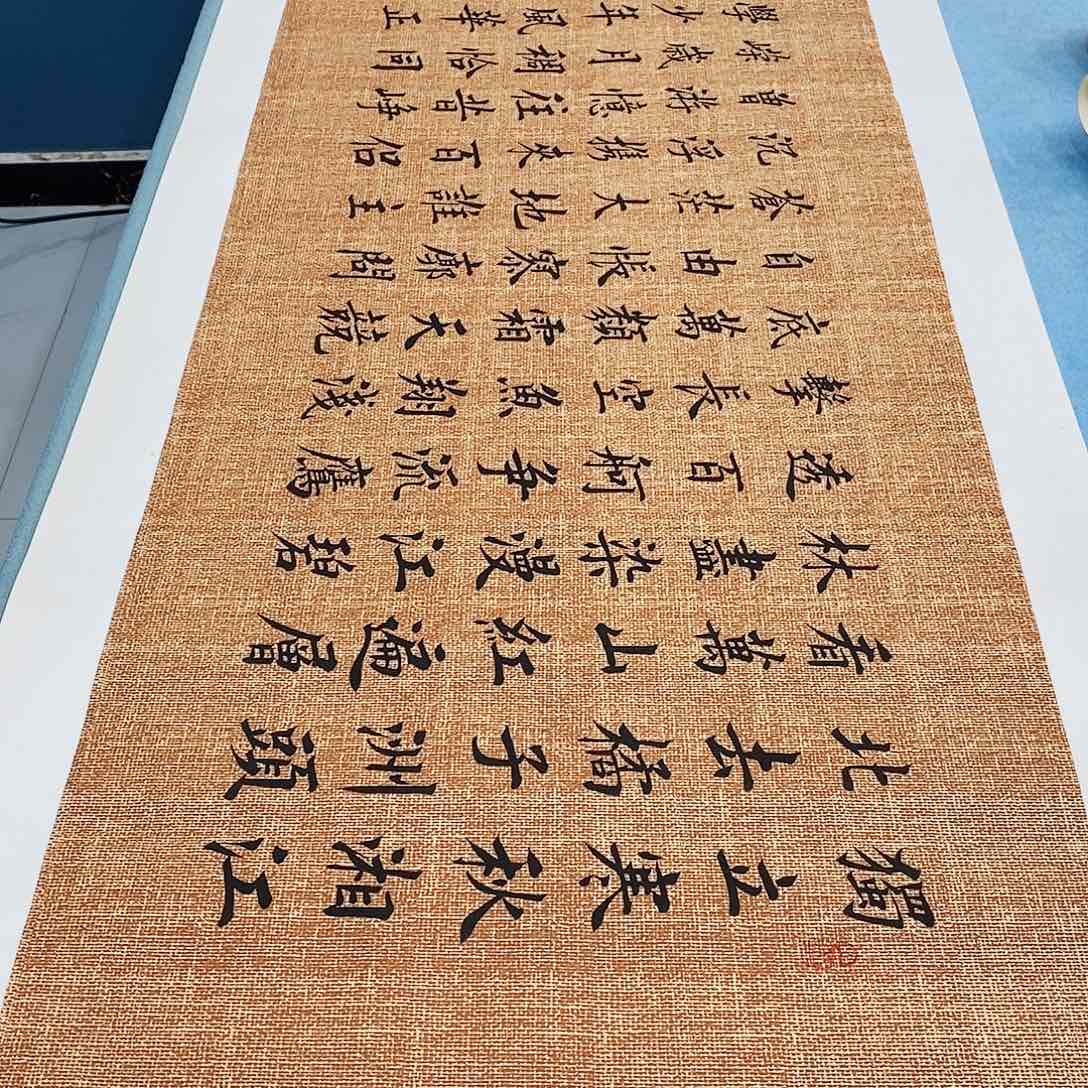 獨立寒秋湘江
北去橘子洲頭
看萬山紅遍層
林盡染漫江碧
透百舸争流鷹
擊長空魚翔淺
底萬類霜天競
自由悵寥廓問
蒼茫大地誰主
沉浮携來百侶
曾游憶往昔崢
嶸歲月稠恰同
學少年風華正